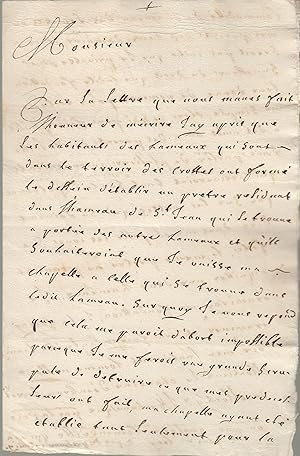 +
Monsieur
Par la lettre que vous m'aves fait
l'honneur de m'ecrire Jay apris que
les habitants des hameaux qui sont
dans le terroir des Crottes ont formé
le dessein d'établir un pretre residant
dans l'hameau de St Jean qui se trouve
a portée des autre hameaux et quils
souhaiteroint que Je unisse ma
chapelle a celle qui se trouve dans
ledit hameau. Sur quoy Je vous repond
que cela me paroit d'abort impossible
parceque Je me ferois une grande scru
pule de detruire ce que mes predeces
seurs ont fait, ma chapelle ayant eté
etablie tant seulement pour la